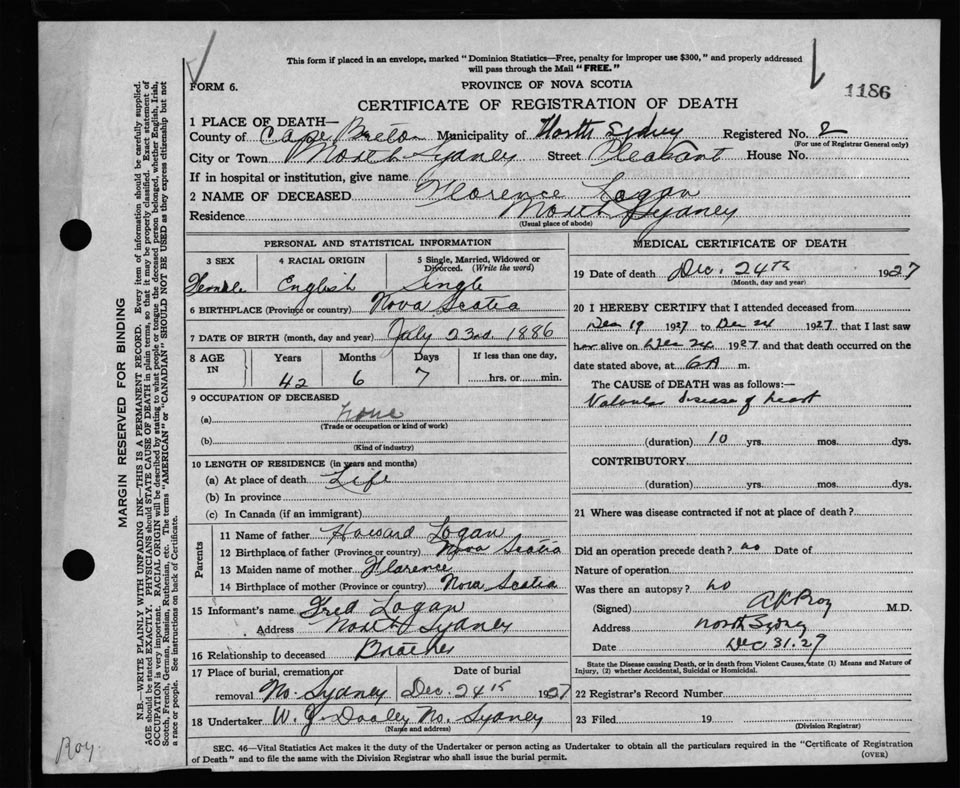 This form if placed in an envelope, marked "Dominion Statistics—Free, penalty for improper use $300," and properly addressed
will pass through the Mail "FREE."
FORM 6.
PROVINCE OF NOVA SCOTIA
1186
CERTIFICATE OF REGISTRATION OF DEATH
1 PLACE OF DEATH—
County of Cape Breton Municipality of North Sydney Registered No. 2
(For use of Registrar General only)
City or Town North Sydney Street Pleasant House No.
If in hospital or institution, give name
2 NAME OF DECEASED Florence Logan
Residence North Sydney
(Usual place of abode)
PERSONAL AND STATISTICAL INFORMATION
3 SEX 4 RACIAL ORIGIN 5 Single, Married, Widowed or
Divorced. (Write the word)
Female English Single
6 BIRTHPLACE (Province or country) Nova Scotia
7 DATE OF BIRTH (month, day and year) July 23rd. 1886
8 AGE IN Years Months Days If less than one day,
42 6 7 hrs. or min.
9 OCCUPATION OF DECEASED
(a) none
(Trade or occupation or kind of work)
(b)
(Kind of industry)
10 LENGTH OF RESIDENCE (in years and months)
(a) At place of death Life
(b) In province
(c) In Canada (if an immigrant)
Parents
11 Name of father Howard Logan
12 Birthplace of father (Province or country) Nova Scotia
13 Maiden name of mother Florence
14 Birthplace of mother (Province or country) Nova Scotia
15 Informant's name Fred Logan
Address North Sydney
16 Relationship to deceased Brother
17 Place of burial, cremation or Date of burial
removal No. Sydney Dec. 24th 1927
18 Undertaker W. J. Dooley No. Sydney
(Name and address)
MEDICAL CERTIFICATE OF DEATH
19 Date of death Dec. 24th 1927
(Month, day and year)
20 I HEREBY CERTIFY that I attended deceased from
Dec 19 1927 to Dec 24 1927 that I last saw
her alive on Dec 24 1927 and that death occurred on the
date stated above, at 6 A m.
The CAUSE OF DEATH was as follows:—
Valvular disease of heart
(duration) 10 yrs. mos. dys.
CONTRIBUTORY
(duration) yrs. mos. dys.
21 Where was disease contracted if not at place of death?
Did an operation precede death? no Date of
Nature of operation
Was there an autopsy? no
(Signed) Roy M.D.
Address North Sydney
Date Dec 31. 27
State the Disease causing Death, or in death from Violent Causes, state (1) Means and Nature of
Injury, (2) whether Accidental, Suicidal or Homicidal.
22 Registrar's Record Number
23 Filed 19
(Division Registrar)
SEC. 46—Vital Statistics Act makes it the duty of the Undertaker or person acting as Undertaker to obtain all the particulars required in the "Certificate of Registration
of Death" and to file the same with the Division Registrar who shall issue the burial permit.
(OVER)
MARGIN RESERVED FOR BINDING
N.B.—WRITE PLAINLY WITH UNFADING INK—THIS IS A PERMANENT RECORD. Every item of information should be carefully supplied.
AGE should be stated EXACTLY. PHYSICIANS should STATE CAUSE OF DEATH in plain terms, so that it may be properly classified. Exact statement of
OCCUPATION is very important. RACIAL ORIGIN will be described by stating to what people or tongue the deceased person belonged, whether English, Irish,
Scotch, French, German, Russian, Ruthenian, etc. The terms "AMERICAN" or "CANADIAN" SHOULD NOT BE USED as they express citizenship but not
a race or people. See instructions on back of Certificate.
Roy